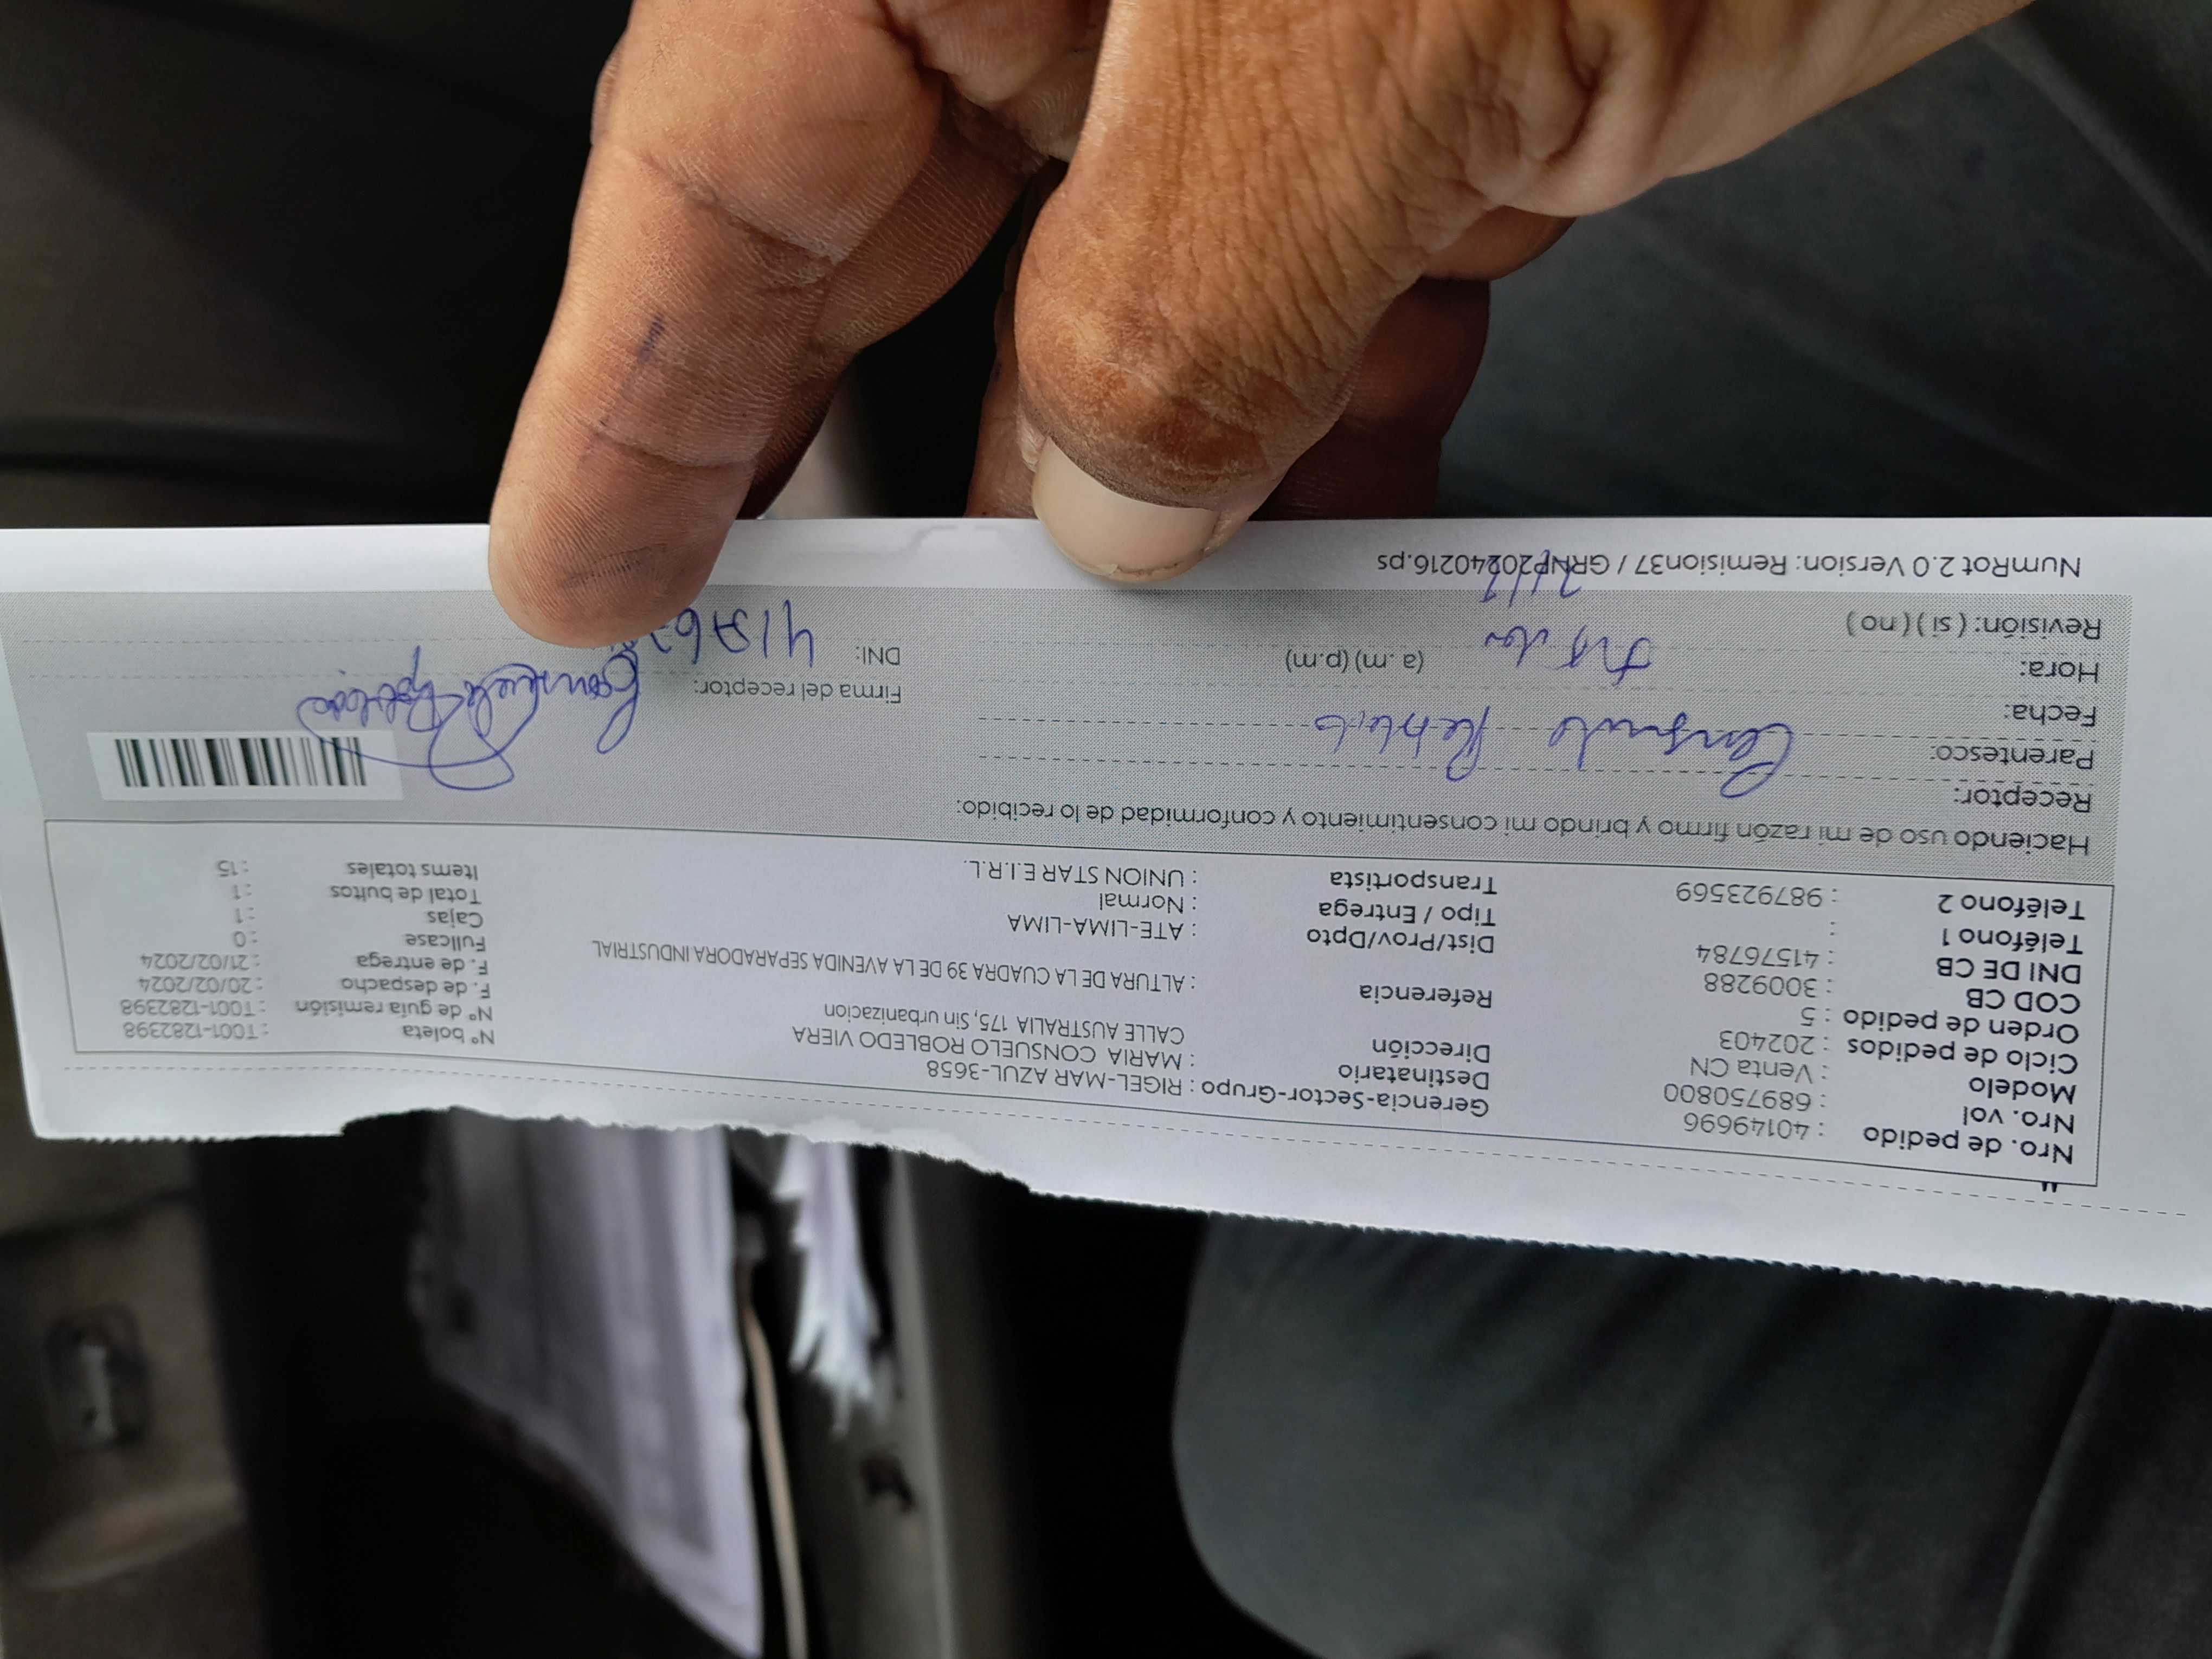 Nro. de pedido : 40149696
Nro. vol : 689750800
Modelo : Venta CN
Ciclo de pedidos : 202403
Orden de pedido : 5
COD CB : 3009288
DNI DE CB : 41576784
Teléfono 1 :
Teléfono 2 : 987923569
Gerencia-Sector-Grupo : RIGEL-MAR AZUL-3658
Destinatario : MARIA CONSUELO ROBLEDO VIERA
Dirección CALLE AUSTRALIA 175, Sin urbanizacion
Referencia : ALTURA DE LA CUADRA 39 DE LA AVENIDA SEPARADORA INDUSTRIAL
Dist/Prov/Dpto : ATE-LIMA-LIMA
Tipo / Entrega : Normal
Transportista : UNION STAR E.I.R.L.
Nº boleta : T001-1282398
Nº de guía remisión : T001-1282398
F. de despacho : 20/02/2024
F. de entrega : 21/02/2024
Fullcase : 0
Cajas : 1
Total de bultos : 1
Items totales : 15
Haciendo uso de mi razón firmo y brindo mi consentimiento y conformidad de lo recibido:
Receptor: Consuelo Robledo
Parentesco:
Fecha:
Hora: (a.m) (p.m)
Revisión: ( si ) ( no )
Firma del receptor: Consuelo Robledo
DNI:
NumRot 2.0 Version: Remision37 / GRNP20240216.ps